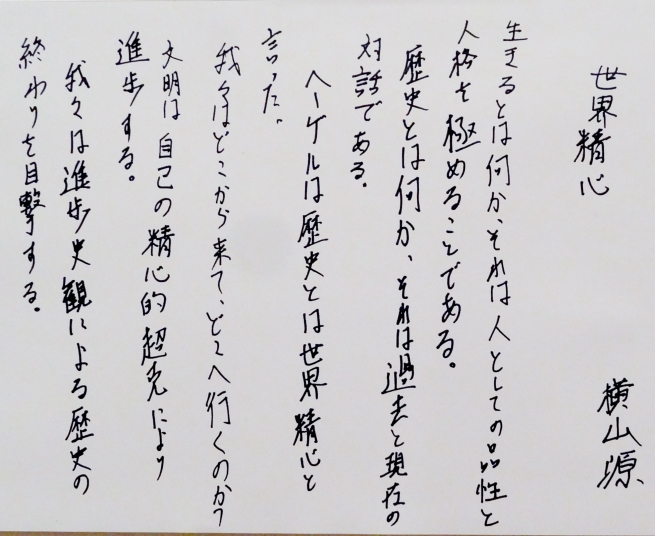 世界精心
横山源
生きるとは何か、それは人としての品性と
人格を極めることである。
歴史とは何か、それは過去と現在の
対話である。
ヘーゲルは歴史とは世界精心と
言った。
我々はどこから来て、どこへ行くのか?
文明は自己の精心的超克により
進歩する。
我々は進歩史観による歴史の
終わりを目撃する。